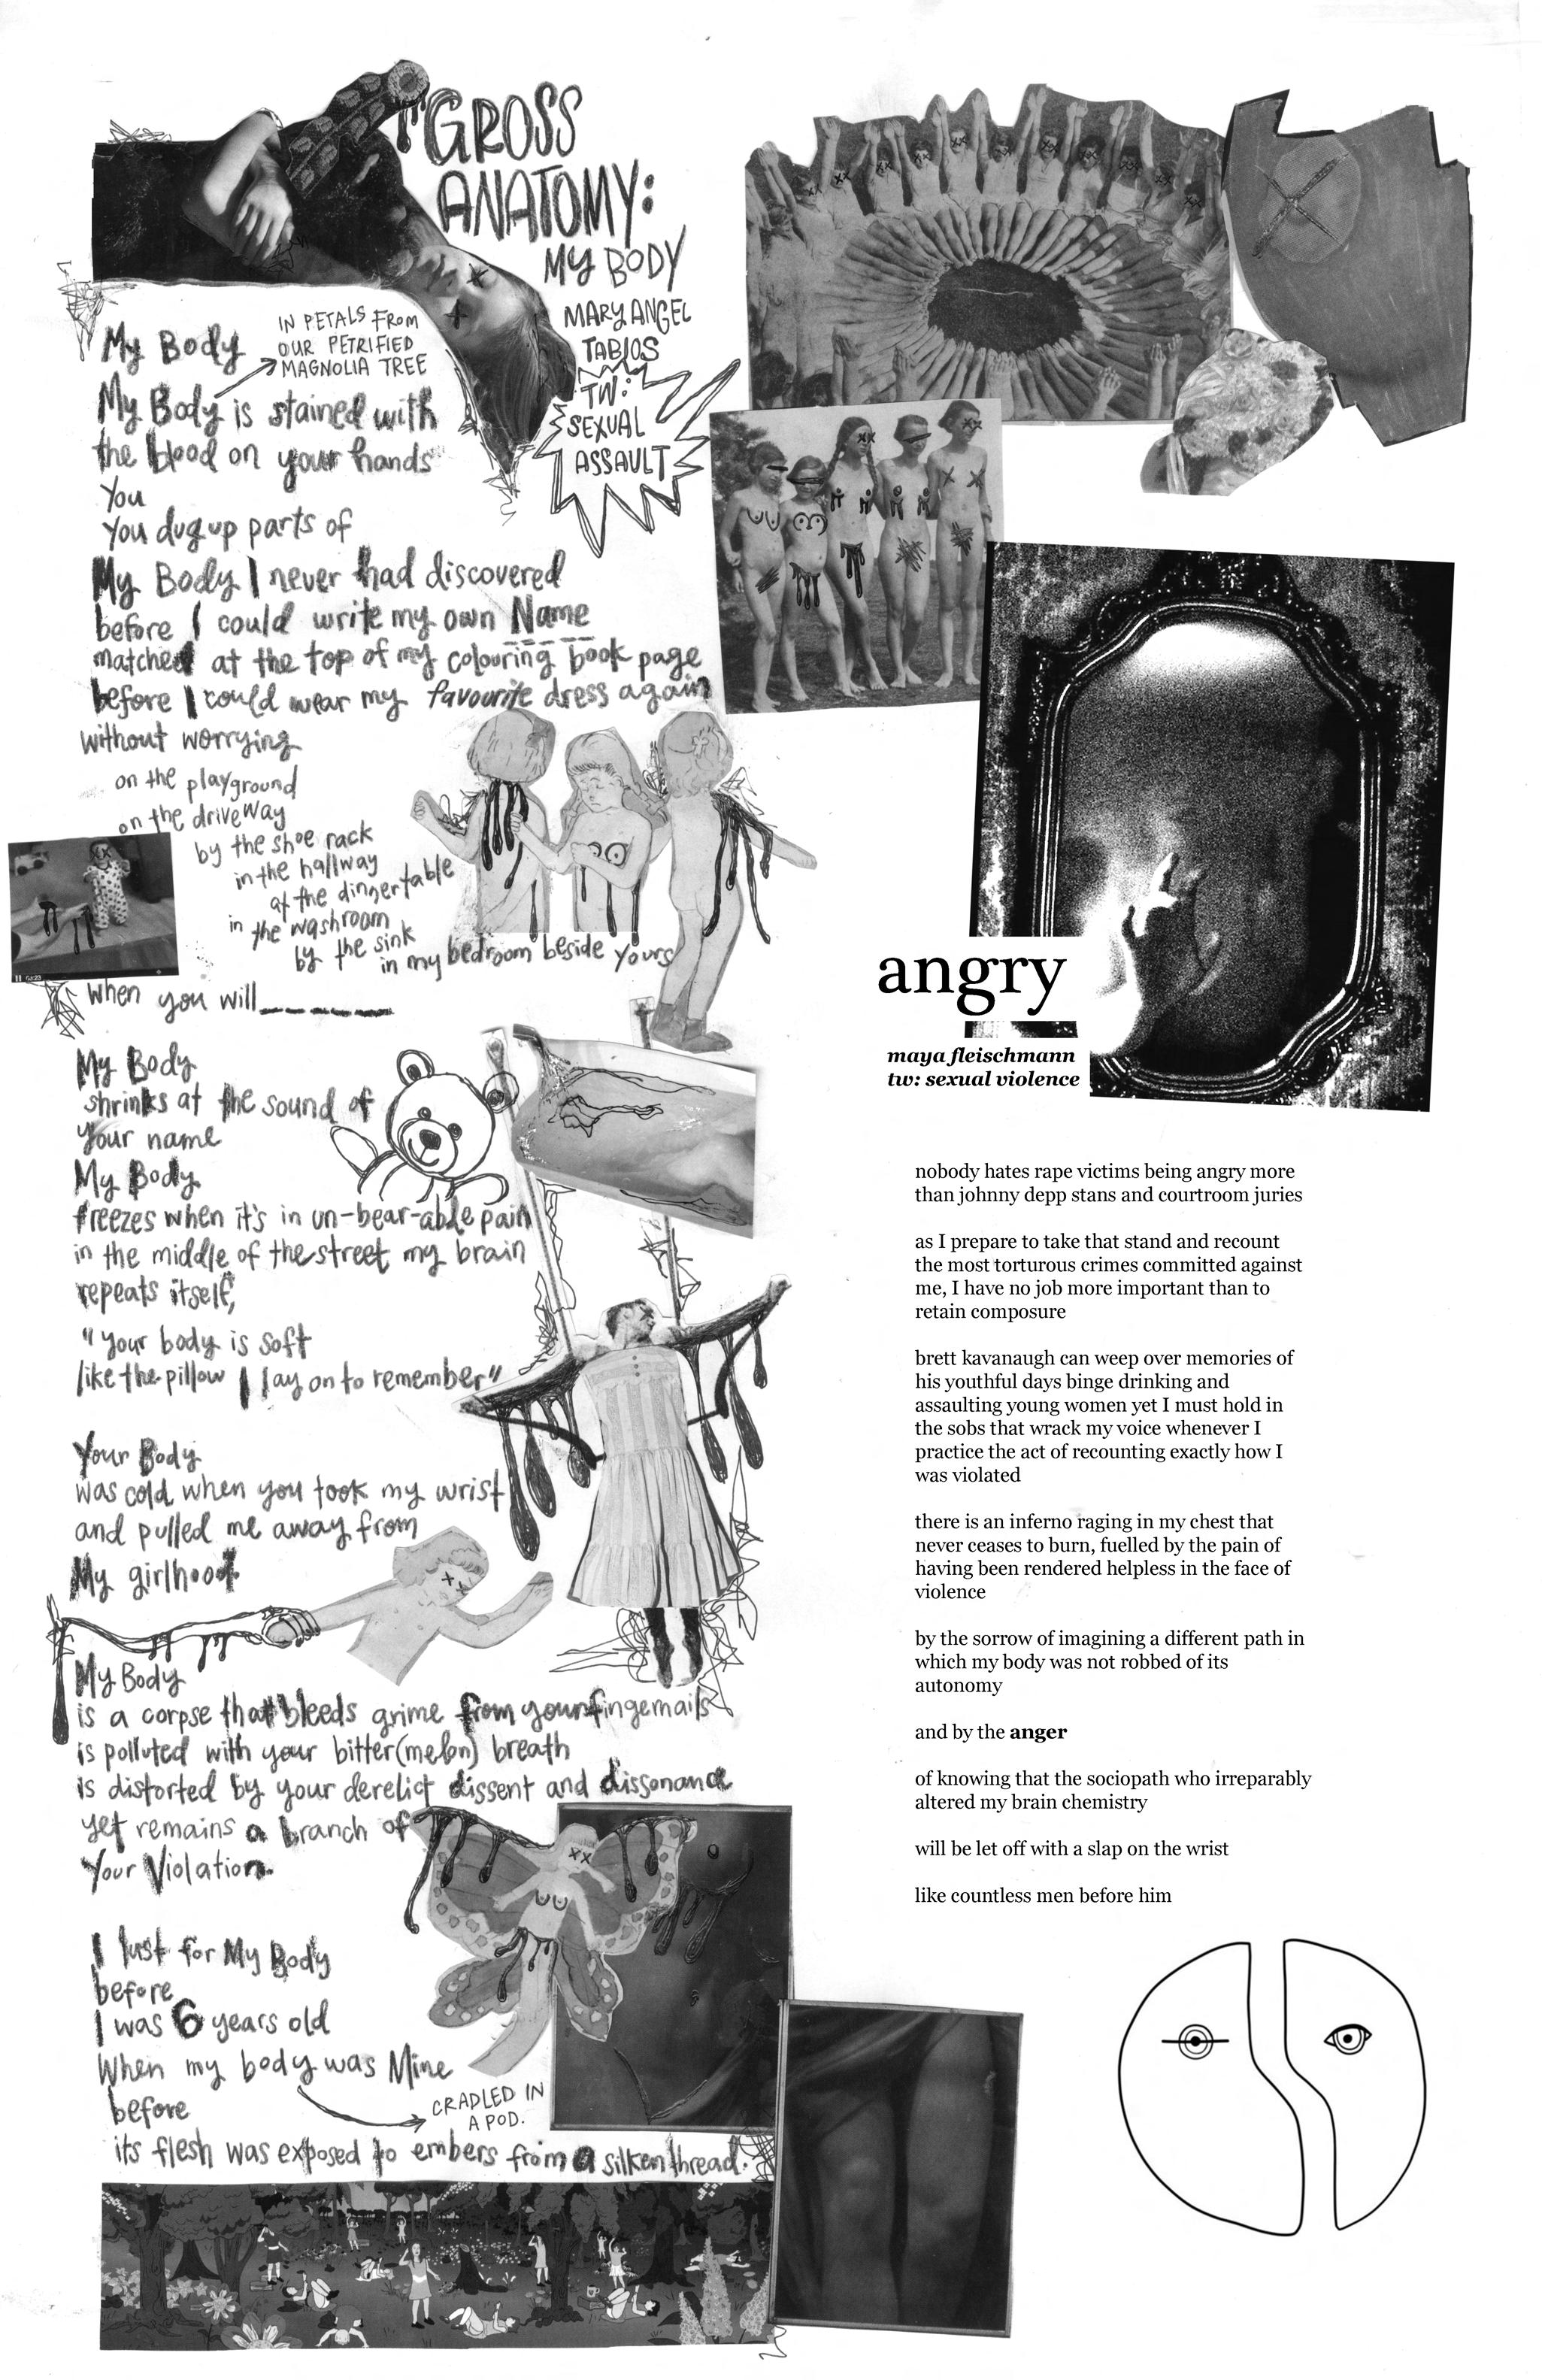 GROSS
ANATOMY:
MY BODY
MARY ANGEL
TABIOS
TW:
SEXUAL
ASSAULT
My Body
IN PETALS FROM
OUR PETRIFIED
MAGNOLIA TREE
My Body is stained with
the blood on your hands
You
You dug up parts of
My Body I never had discovered
before I could write my own Name
matched at the top of my colouring book page
before I could wear my favourite dress again
without worrying
on the playground
on the driveway
by the shoe rack
in the hallway
at the dinner table
in the washroom
by the sink
in my bedroom beside yours
when you will _ _ _ _ _
My Body
shrinks at the sound of
your name
My Body
freezes when it's in un-bear-able pain
in the middle of the street my brain
repeats itself,
"your body is soft
like the pillow I lay on to remember"
Your Body
was cold when you took my wrist
and pulled me away from
My girlhood
My Body
is a corpse that bleeds grime from your fingernails
is polluted with your bitter(melon) breath
is distorted by your derelict dissent and dissonance
yet remains a branch of
Your Violation.
I lust for My Body
before
I was 6 years old
When my body was Mine
before
CRADLED IN
A POD.
its flesh was exposed to embers from a silken thread.
angry
maya fleischmann
tw: sexual violence
nobody hates rape victims being angry more
than johnny depp stans and courtroom juries
as I prepare to take that stand and recount
the most torturous crimes committed against
me, I have no job more important than to
retain composure
brett kavanaugh can weep over memories of
his youthful days binge drinking and
assaulting young women yet I must hold in
the sobs that wrack my voice whenever I
practice the act of recounting exactly how I
was violated
there is an inferno raging in my chest that
never ceases to burn, fuelled by the pain of
having been rendered helpless in the face of
violence
by the sorrow of imagining a different path in
which my body was not robbed of its
autonomy
and by the anger
of knowing that the sociopath who irreparably
altered my brain chemistry
will be let off with a slap on the wrist
like countless men before him